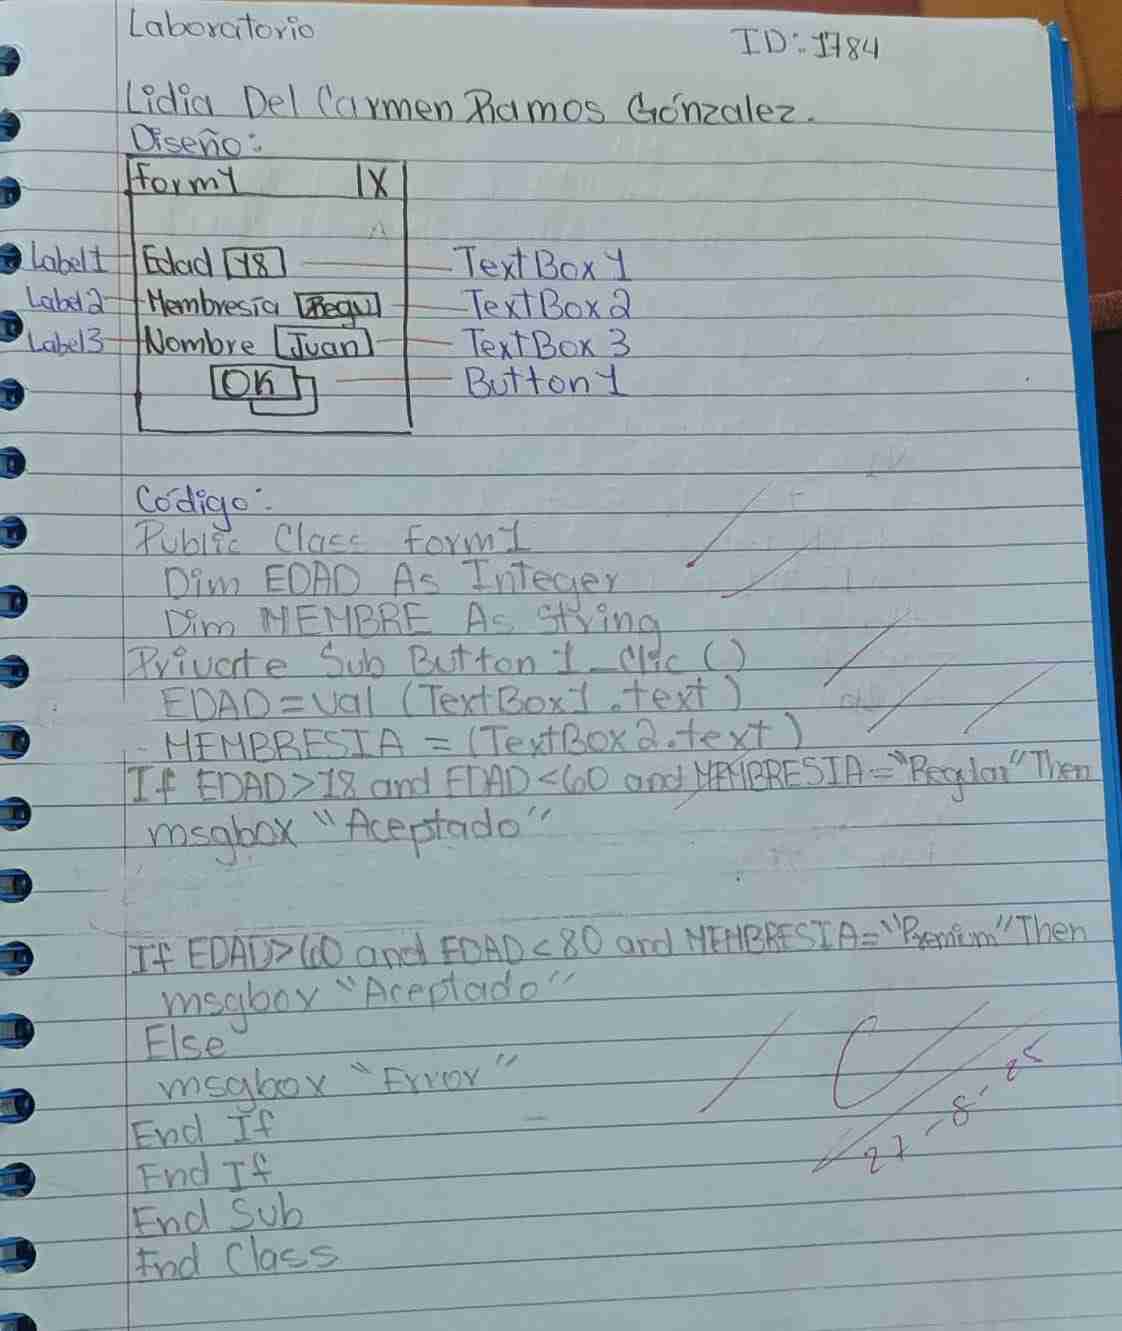 Laboratorio
ID:1784
Lidia Del Carmen Ramos Gónzalez.
Diseño:
Form1 X
Label1 Edad 18 TextBox1
Label2 Membresía Regu TextBox2
Label3 Nombre Juan TextBox3
OK Button1
Código:
Public Class form1
Dim EDAD As Integer
Dim MEMBRE As String
Private Sub Button1_Clic()
EDAD=val (TextBox1.text)
MEMBRESIA = (TextBox2.text)
If EDAD>18 and EDAD<60 and MEMBRESIA="Regular" Then
msgbox "Aceptado"
If EDAD>60 and EDAD<80 and MEMBRESIA="Premium" Then
msgbox "Aceptado"
Else
msgbox "Error"
End If
End If
End Sub
End Class
27-8-25